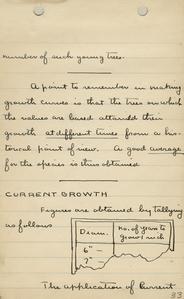 number of such young trees.
A point to remember in making
growth curves is that the trees on which
the values are based attained their
growth at different times from a his-
torical point of view. A good average
for the species is thus obtained.
CURRENT GROWTH
Figures are obtained by tallying
as follows
Diam. no. of years to
grow 1 inch
6" -
7" -
The application of Current
83